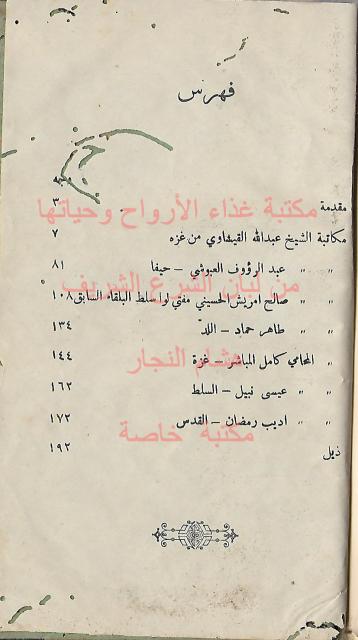 فهرس
صفحة
مقدمة ٣
مكتبة غذاء الأرواح وحياتها
مكاتبة الشيخ عبدالله القيشاوي من غزه ٧
» » عبد الرؤوف العبوشي – حيفا ٨١
من لبان الشرع الشريف
» » صالح امريش الحسيني مفتي لواء سلط البلقاء السابق ١٠٨
» » طاهر حماد – اللدّ ١٣٤
» المحامي كامل المباشر – غزة ١٤٤
هشام النجار
» » عيسى نبيل – السلط ١٦٢
» » اديب رمضان – القدس ١٧٢
مكتبة خاصة
ذيل ١٩٢